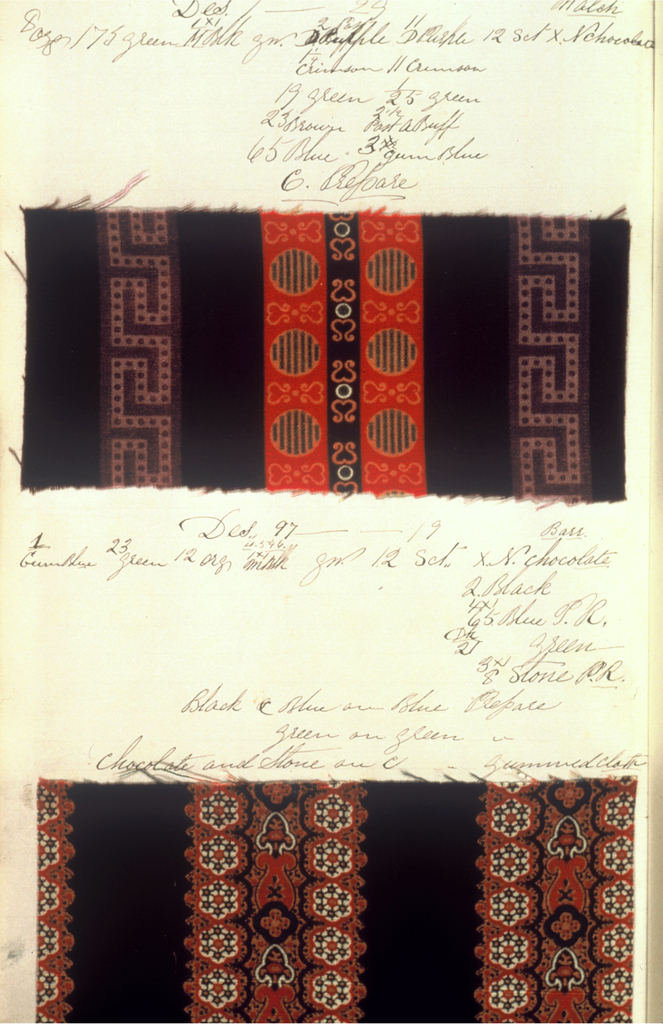 Des. — 24 Match
8 org 175 green Mblk gn. Purple 11 Purple 12 Sct X. N chocolate
Crimson 11 Crimson
19 green 1/25 green
23 Brown Post a Buff
65 Blue 3 gum Blue
C. Prepare
Des. 97 — — 19 Barr.
1 Gum Blue 23 green 12 org gn. 12 Sct. X. N. chocolate
2 Black
65 Blue P. R.
Dk 21 green
8 Stone P. R.
Black & Blue on Blue Prepare
green on green "
Chocolate and Stone on C " gummed cloth